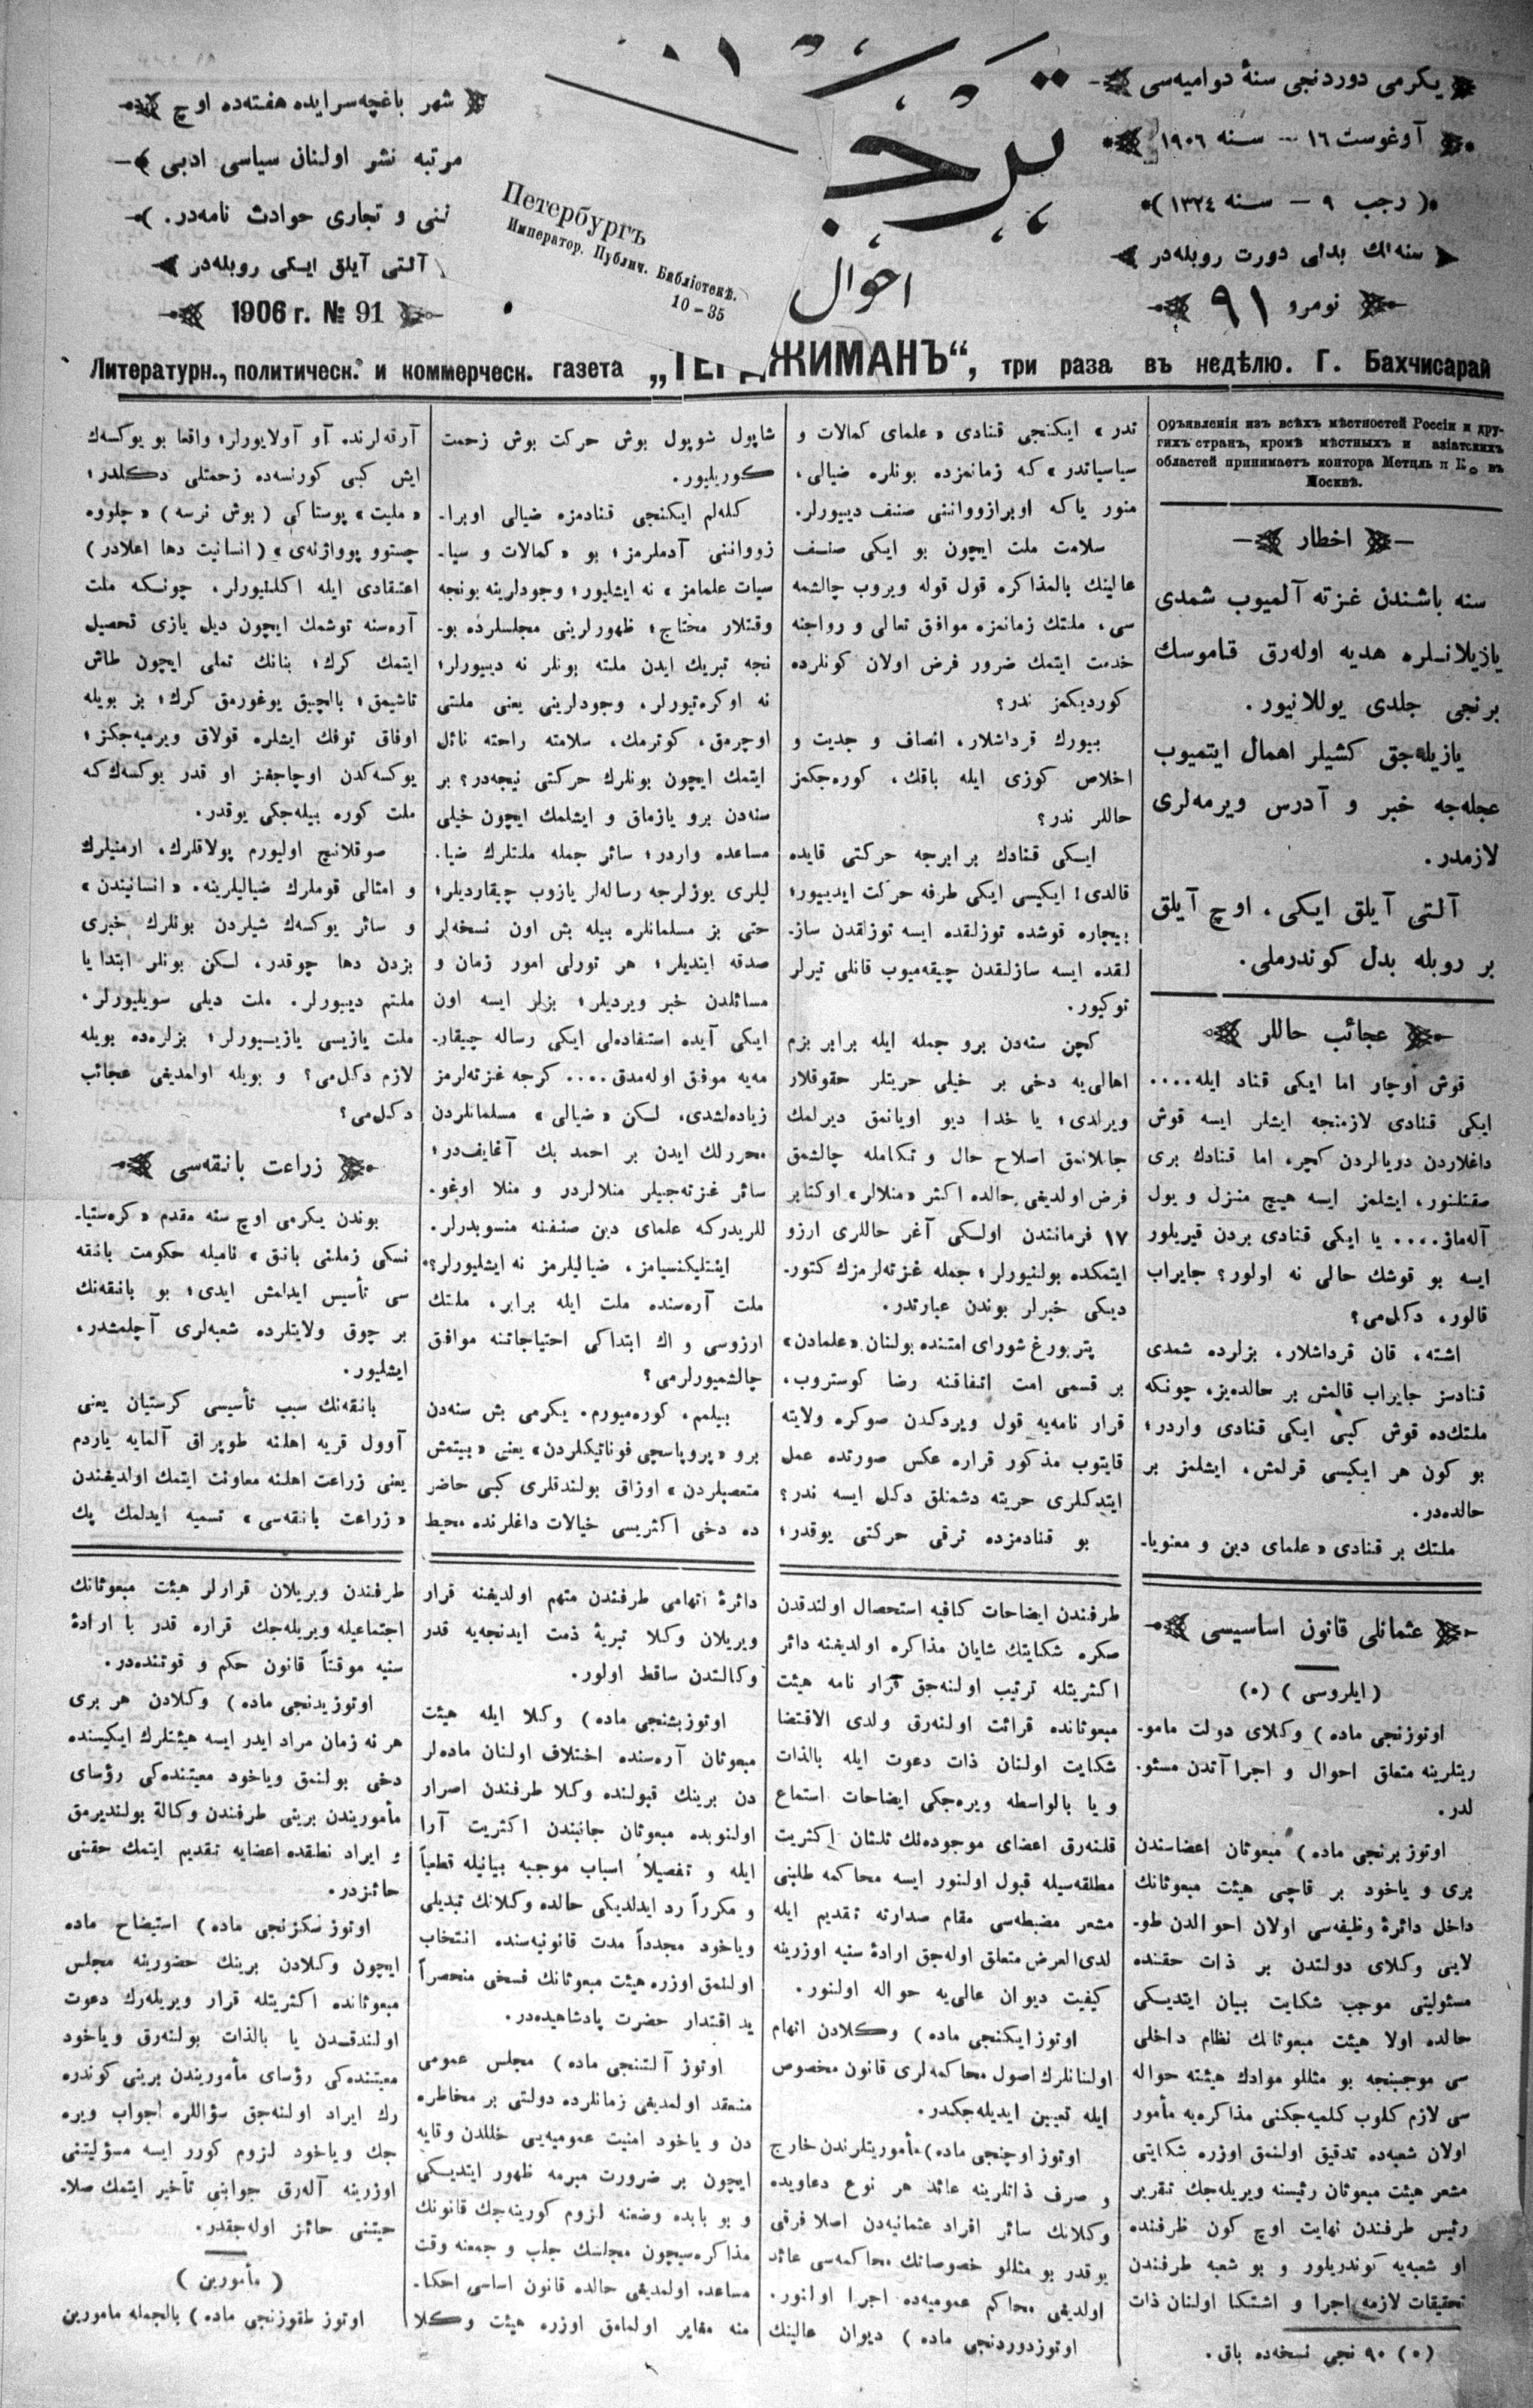 يكرمی دوردنجی سنۀ دواميه‌سی
آوغوست ١٦ — سنه ١٩٠٦
(رجب ٩ — سنه ١٣٢٤)
سنه‌لك بدلی دورت روبله‌در
نومرو ٩١
ترجمان
احوال
Петербургъ
Император. Публич. Библіотекѣ.
10-35
شهر باغچه‌سرايده هفته‌ده اوچ
مرتبه نشر اولنان سياسی ادبی
فنی و تجاری حوادث نامه‌در.
آلتی آيلق ايكی روبله‌در
1906 г. № 91
Литературн., политическ. и коммерческ. газета „ТЕРДЖИМАНЪ“, три раза въ недѣлю. Г. Бахчисарай
Объявленія изъ всѣхъ мѣстностей Россіи и дру-
гихъ странъ, кромѣ мѣстныхъ и азіатскихъ
областей принимаетъ контора Метцль и Ко въ
Москвѣ.
اخطار
سنه باشندن غزته آلميوب شمدی
يازيلانلره هديه اوله‌رق قاموسك
برنجی جلدی يوللانيور.
يازيله‌جق كشيلر اهمال ايتميوب
عجله‌جه خبر و آدرس ويرمه‌لری
لازمدر.
آلتی آيلق ايكی، اوچ آيلق
بر روبله بدل كوندرملی.
عجائب حاللر
قوش اوچار اما ايكی قناد ايله....
ايكی قنادی لازمنجه ايشلر ايسه قوش
داغلاردن دريالردن كچر، اما قنادك بری
صقتلنور، ايشلمز ايسه هيچ منزل و يول
آله‌ماز.... يا ايكی قنادی بردن قيريلور
ايسه بو قوشك حالی نه اولور؟ جايراب
قالور، دكل‌می؟
اشته، قان قرداشلار، بزلرده شمدی
قنادسز جايراب قالمش بر حالده‌يز، چونكه
ملتك‌ده قوش كبی ايكی قنادی واردر؛
بو كون هر ايكيسی قرلمش، ايشلمز بر
حالده‌در.
ملتك بر قنادی «علمای دين و معنويا-
تدر» ايكنجی قنادی «علمای كمالات و
سياسياتدر» كه زمانمزده بونلره ضيالی،
منور ياكه اوبرازوواننی صنف ديييورلر.
سلامت ملت ايچون بو ايكی صنف
عالينك بالمذاكره قول قوله ويروب چالشمه
سی، ملتك زمانمزه موافق تعالی و رواجنه
خدمت ايتمك ضرور فرض اولان كونلرده
كورديكمز ندر؟
بيورك قرداشلار، انصاف و جديت و
اخلاص كوزی ايله باقك، كوره‌جكمز
حاللر ندر؟
ايكی قنادك برابرجه حركتی قايده
قالدی! ايكيسی ايكی طرفه حركت ايدييور؛
بيچاره قوشده توزلقده ايسه توزلقدن ساز-
لقده ايسه سازلقدن چيقه‌ميوب قانلی تيرلر
توكيور.
كچن سنه‌دن برو جمله ايله برابر بزم
اهالی‌يه دخی بر خيلی حريتلر حقوقلار
ويرلدی؛ يا خدا ديو اويانمق ديرلمك
جانلانمق اصلاح حال و تكامله چالشمق
فرض اولديغی حالده اكثر «منلالر» اوكتابر
١٧ فرمانندن اولكی آغر حاللری ارزو
ايتمكده بولنيورلر؛ جمله غزته‌لرمزك كتور-
ديكی خبرلر بوندن عبارتدر.
پتربورغ شورای امتنده بولنان «علمادن»
بر قسمی امت اتفاقنه رضا كوستروب،
قرار نامه‌يه قول ويردكدن صوكره ولايته
قايتوب مذكور قراره عكس صورتده عمل
ايتدكلری حريته دشمنلق دكل ايسه ندر؟
بو قنادمزده ترقی حركتی يوقدر؛
شاپول شوپول بوش حركت بوش زحمت
كوريليور.
كله‌لم ايكنجی قنادمزه ضيالی اوبرا-
زوواننی آدملرمز؛ بو «كمالات و سيا-
سيات علمامز» نه ايشليور؛ وجودلرينه بونجه
وقتلار محتاج؛ ظهورلرينی مجلسلرده بو-
نجه تبريك ايدن ملته بونلر نه ديييورلر؛
نه اوكره‌تيورلر، وجودلرينی يعنی ملتی
اوچرمق، كوترمك، سلامته راحته نائل
ايتمك ايچون بونلرك حركتی نيجه‌در؟ بر
سنه‌دن برو يازماق و ايشلمك ايچون خيلی
مساعده واردر؛ سائر جمله ملتلرك ضيا-
ليلری يوزلرجه رساله‌لر يازوب چيقارديلر؛
حتی بز مسلمانلره بيله بش اون نسخه‌لر
صدقه ايتديلر؛ هر تورلی امور زمان و
مسائلدن خبر ويرديلر؛ بزلر ايسه اون
ايكی آيده استفاده‌لی ايكی رساله چيقار-
مه‌يه موفق اوله‌مدق.... كرجه غزته‌لرمز
زياده‌لشدی، لكن «ضيالی» مسلمانلردن
محررلك ايدن بر احمد بك آغايف‌در؛
سائر غزته‌جيلر منلالردر و منلا اوغو-
للريدركه علمای دين صنفنه منسوبدرلر.
اينتليكنسيامز، ضياليلرمز نه ايشليورلر؟
ملت آره‌سنده ملت ايله برابر، ملتك
ارزوسی و اك ابتداكی احتياجاتنه موافق
چالشميورلرمی؟
بيلمم، كوره‌ميورم. يكرمی بش سنه‌دن
برو «پروپاسچی فوناتيكلردن» يعنی «بيتمش
متعصبلردن» اوزاق بولندقلری كبی حاضر
ده دخی اكثريسی خيالات داغلرنده محيط
آرقه‌لرنده آو آولايورلر؛ واقعا بو يوكسك
ايش كبی كورنسه‌ده زحمتلی دكلدر؛
«مليت» پوستاكی (بوش نرسه) «چلووه
چستوو پووازنه‌ی» (انسانيت دها اعلادر)
اعتقادی ايله اكلنيورلر، چونكه ملت
آره‌سنه توشمك ايچون ديل يازی تحصيل
ايتمك كرك؛ بنانك تملی ايچون طاش
تاشيمق؛ بالچيق يوغورمق كرك؛ بز بويله
اوفاق توفك ايشلره قولاق ويرميه‌جكز؛
يوكسه‌كدن اوچاجغز او قدر يوكسك‌كه
ملت كوره بيله‌جكی يوقدر.
صوقلانيچ اوليورم پولاقلرك، ارمنيلرك
و امثالی قوملرك ضياليلرينه. «انسانيتدن»
و سائر يوكسك شيلردن بونلرك خبری
بزدن دها چوقدر، لكن بونلر ابتدا يا
ملتم ديييورلر. ملت ديلی سويليورلر،
ملت يازيسی يازييورلر؛ بزلره‌ده بويله
لازم دكل‌می؟ و بويله اولمديغی عجائب
دكل‌می؟
زراعت بانقه‌سی
بوندن يكرمی اوچ سنه مقدم «كره‌ستيا-
نسكی زملنی بانق» ناميله حكومت بانقه
سی تأسيس ايدلمش ايدی؛ بو بانقه‌نك
بر چوق ولايتلرده شعبه‌لری آچلمشدر،
ايشليور.
بانقه‌نك سبب تأسيسی كرستيان يعنی
آوول قريه اهلنه طوپراق آلمايه ياردم
يعنی زراعت اهلنه معاونت ايتمك اولديغندن
«زراعت بانقه‌سی» تسميه ايدلمك پك
عثمانلی قانون اساسيسی
(ايلروسی) (٥)
اوتوزنجی ماده) وكلای دولت مامو-
ريتلرينه متعلق احوال و اجراآتدن مسئو-
لدر.
اوتوز برنجی ماده) مبعوثان اعضاسندن
بری و ياخود بر قاچی هيئت مبعوثانك
داخل دائرۀ وظيفه‌سی اولان احوالدن طو-
لايی وكلای دولتدن بر ذات حقنده
مسئوليتی موجب شكايت بيان ايتديكی
حالده اولا هيئت مبعوثانك نظام داخلی
سی موجبنجه بو مثللو موادك هيئته حواله
سی لازم كلوب كلميه‌جكنی مذاكره‌يه مأمور
اولان شعبه‌ده تدقيق اولنمق اوزره شكايتی
مشعر هيئت مبعوثان رئيسنه ويريله‌جك تقرير
رئيس طرفندن نهايت اوچ كون ظرفنده
او شعبه‌يه كوندريلور و بو شعبه طرفندن
تحقيقات لازمه اجرا و اشتكا اولنان ذات
(٥) ٩٠ نجی نسخه‌ده باق.
طرفندن ايضاحات كافيه استحصال اولندقدن
صكره شكايتك شايان مذاكره اولديغنه دائر
اكثريتله ترتيب اولنه‌جق قرار نامه هيئت
مبعوثانده قرائت اولنه‌رق ولدی الاقتضا
شكايت اولنان ذات دعوت ايله بالذات
و يا بالواسطه ويره‌جكی ايضاحات استماع
قلنه‌رق اعضای موجوده‌نك ثلثان اكثريت
مطلقه‌سيله قبول اولنور ايسه محاكمه طلبنی
مشعر مضبطه‌سی مقام صدارته تقديم ايله
لدی العرض متعلق اوله‌جق ارادۀ سنيه اوزرينه
كيفيت ديوان عالی‌يه حواله اولنور.
اوتوز ايكنجی ماده) وكلادن اتهام
اولنانلرك اصول محاكمه‌لری قانون مخصوص
ايله تعيين ايديله‌جكدر.
اوتوز اوچنجی ماده) مأموريتلرندن خارج
و صرف ذاتلرينه عائد هر نوع دعاويده
وكلانك سائر افراد عثمانيه‌دن اصلا فرقی
يوقدر بو مثللو خصوصاتك محاكمه‌سی عائد
اولديغی محاكم عموميه‌ده اجرا اولنور.
اوتوزدوردنجی ماده) ديوان عالينك
دائرۀ اتهامی طرفندن متهم اولديغنه قرار
ويريلان وكلا تبريۀ ذمت ايدنجه‌يه قدر
وكالتدن ساقط اولور.
اوتوزبشنجی ماده) وكلا ايله هيئت
مبعوثان آره‌سنده اختلاف اولنان ماده‌لر
دن برينك قبولنده وكلا طرفندن اصرار
اولنوبده مبعوثان جانبندن اكثريت آرا
ايله و تفصيلاً اسباب موجبه بيانيله قطعياً
و مكرراً رد ايدلديكی حالده وكلانك تبديلی
وياخود مجدداً مدت قانونيه‌سنده انتخاب
اولنمق اوزره هيئت مبعوثانك فسخی منحصراً
يد اقتدار حضرت پادشاهيده‌در.
اوتوز آلتنجی ماده) مجلس عمومی
منعقد اولمديغی زمانلرده دولتی بر مخاطره
دن و ياخود امنيت عموميه‌يی خللدن وقايه
ايچون بر ضرورت مبرمه ظهور ايتديكی
و بو بابده وضعنه لزوم كورينه‌جك قانونك
مذاكره‌سيچون مجلسك جلب و جمعنه وقت
مساعده اولمديغی حالده قانون اساسی احكا-
منه مغاير اولمامق اوزره هيئت وكلا
طرفندن ويريلان قرارلر هيئت مبعوثانك
اجتماعيله ويريله‌جك قراره قدر با ارادۀ
سنيه موقتاً قانون حكم و قوتنده‌در.
اوتوزيدنجی ماده) وكلادن هر بری
هر نه زمان مراد ايدر ايسه هيئتلرك ايكيسنده
دخی بولنمق وياخود معيتنده‌كی رؤسای
مأموريندن برينی طرفندن وكالة بولنديرمق
و ايراد نطقده اعضايه تقديم ايتمك حقنی
حائزدر.
اوتوز سكزنجی ماده) استيضاح ماده
ايچون وكلادن برينك حضورينه مجلس
مبعوثانده اكثريتله قرار ويريله‌رك دعوت
اولندقدن يا بالذات بولنه‌رق وياخود
معيتنده‌كی رؤسای مأموريندن برينی كوندره
رك ايراد اولنه‌جق سؤاللره اجواب ويره
جك وياخود لزوم كورر ايسه مسؤليتنی
اوزرينه آله‌رق جوابنی تأخير ايتمك صلا-
حيتنی حائز اوله‌جقدر.
(مأمورين)
اوتوز طقوزنجی ماده) بالجمله مامورين